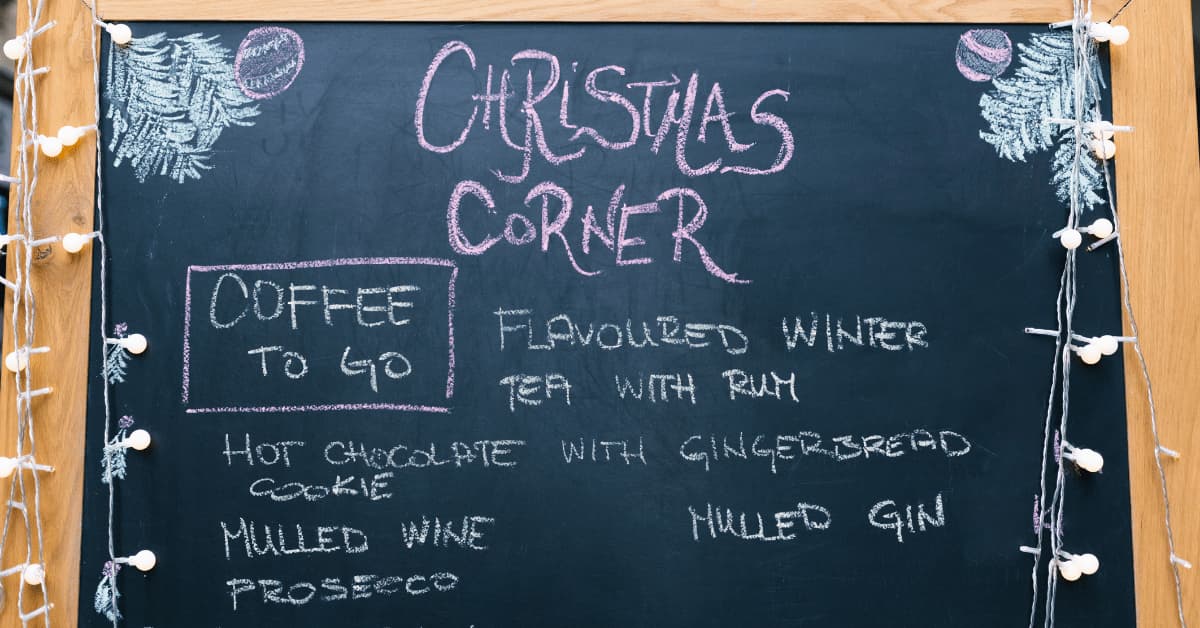 CHRISTMAS
CORNER
COFFEE
TO GO
FLAVOURED WINTER
TEA WITH RUM
HOT CHOCOLATE WITH GINGERBREAD
COOKIE
MULLED WINE
MULLED GIN
PROSECCO